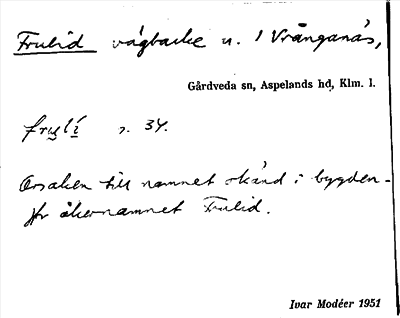 Frulid vägbacke u. / Vrånganäs,
Gårdveda sn, Aspelands hd, Klm. l.
frụlí s. 34.
Orsaken till namnet okänd i bygden -
jfr åkernamnet Frulid.
Ivar Modéer 1951